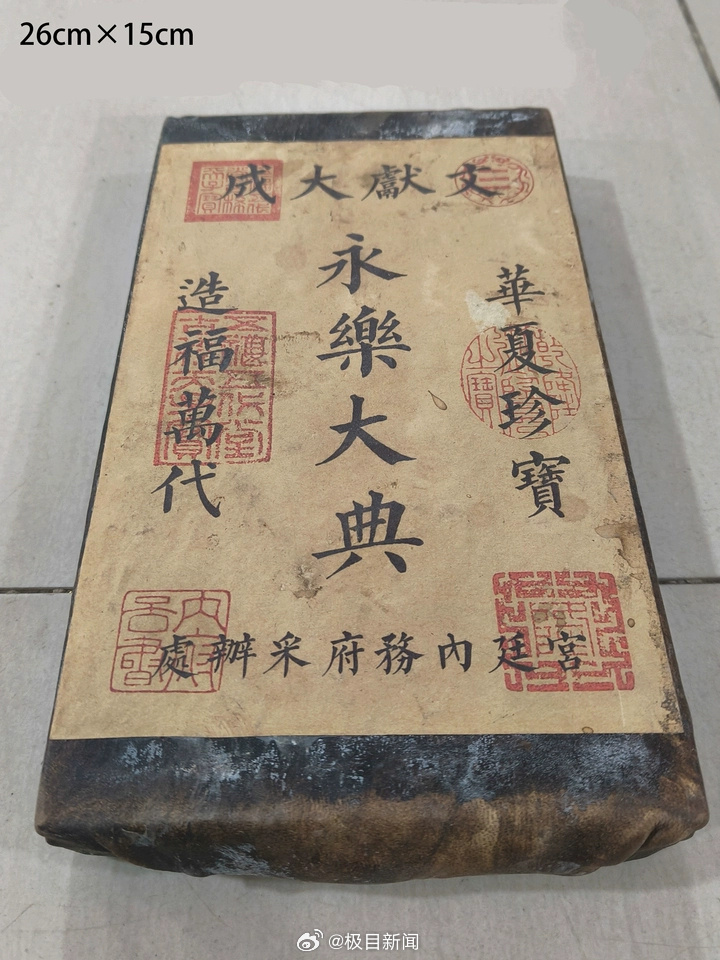 26cm×15cm
文獻大成
華夏珍寶
永樂大典
造福萬代
宮廷內務府采辦處
@极目新闻